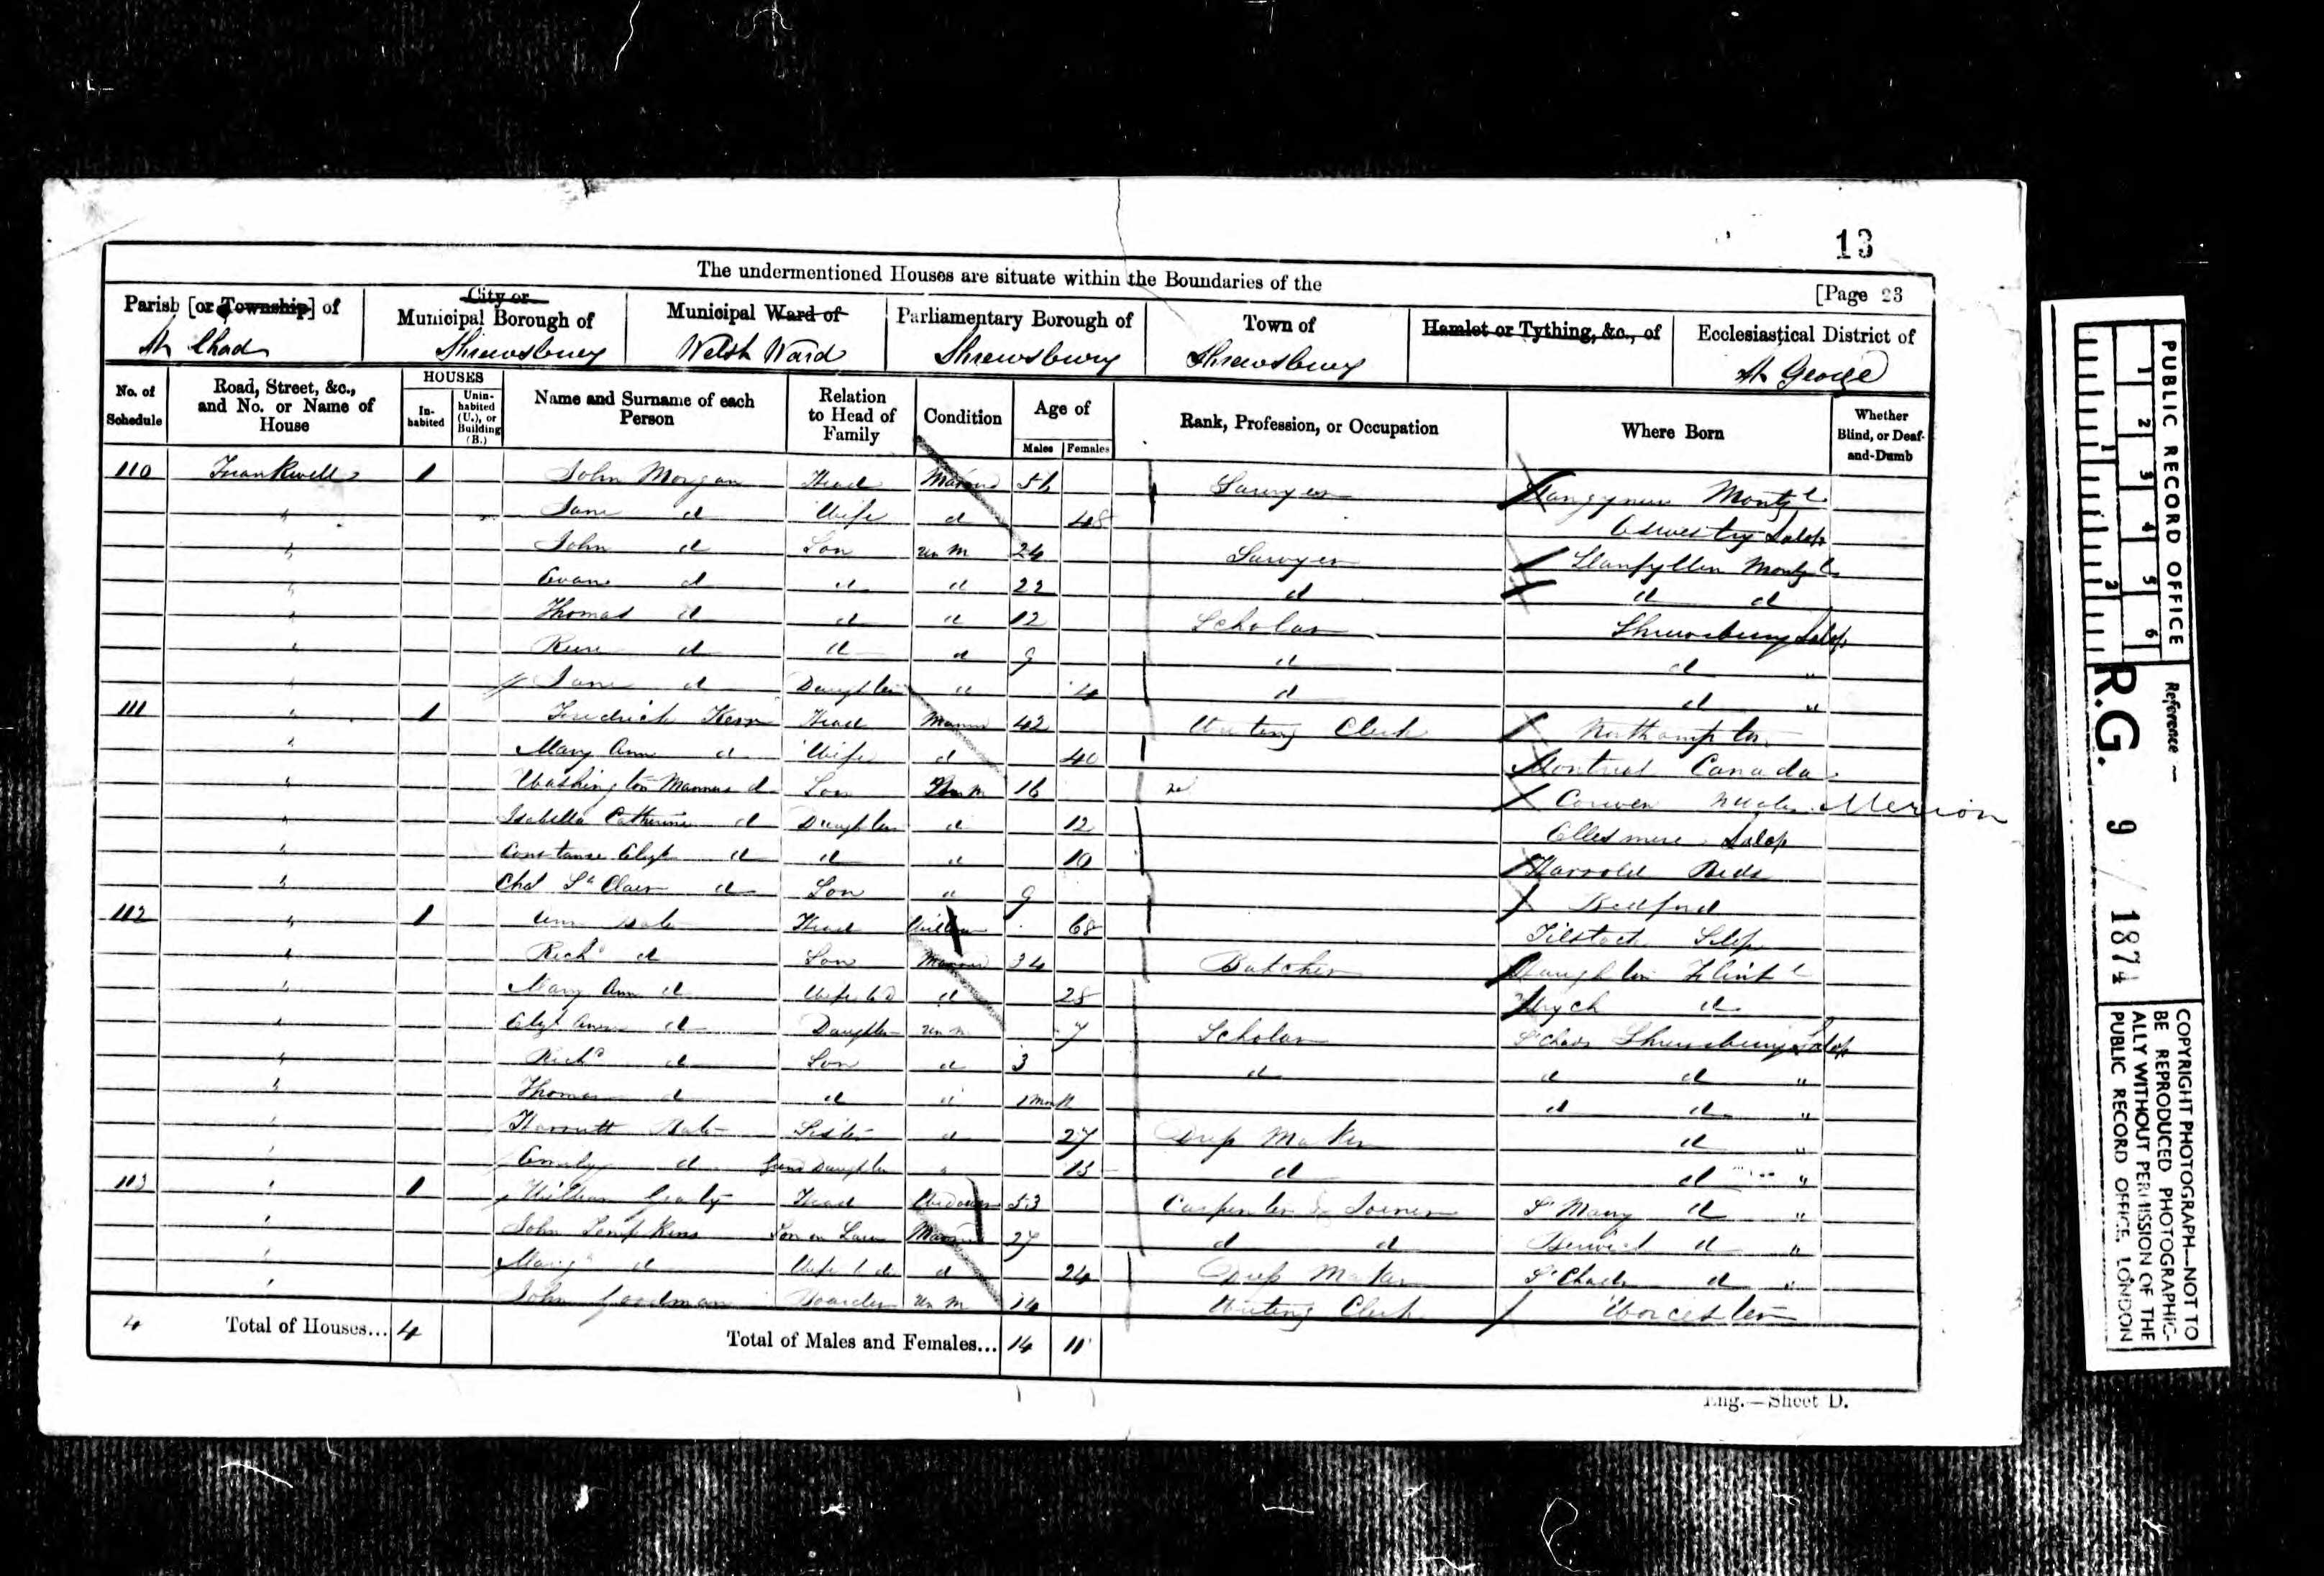 13
The undermentioned Houses are situate within the Boundaries of the
[Page 23
Parish [or Township] of
City or Municipal Borough of
Municipal Ward of
Parliamentary Borough of
Town of
Hamlet or Tything, &c., of
Ecclesiastical District of
St Chad
Shrewsbury
Welsh Ward
Shrewsbury
Shrewsbury
St George
No. of Schedule
Road, Street, &c., and No. or Name of House
HOUSES
In-habited
Unin-habited (U.), or Building (B.)
Name and Surname of each Person
Relation to Head of Family
Condition
Age of
Males
Females
Rank, Profession, or Occupation
Where Born
Whether Blind, or Deaf-and-Dumb
110 Frankwell 1 John Morgan Head Married Sawyer Montg
" Jane d Wife d 48 Oswestry Salop
" John d Son un m 24 Sawyer Llanfyllin Montg
" Evan d d d 22 d d d
" Thomas d d d 12 Scholar Shrewsbury Salop
" d d d 9 d d "
" Jane d Daughter d 4 d d "
111 " 1 Fredrick Head Married 42 Writing Clerk Northampton
" Mary Ann d Wife d 40 Montreal Canada
" Washington d Son Un m 16 Corwen Wales Merion
" Isabella Catherine d Daughter d 12 Ellesmere Salop
" Constance Eliz d d d 10 Harrold Beds
" Chas St Clair d Son d 9 Bedford
112 " 1 Ann Head Widow 68 Tilstock Salop
" Richd d Son Married 34 Butcher Flint
" Mary Ann d Wife d 28 d
" Eliz Ann d Daughter un m 7 Scholar St Chads Shrewsbury Salop
" Richd d Son d 3 d d d "
" Thomas d d d 1 Month d d "
" d 27 Dress Maker d "
" d Grand Daughter 13 d d "
113 " 1 William Head Widower 53 Carpenter & Joiner St Mary d "
" John Son in Law Married 27 d d Berwick d "
" Mary d Wife d 24 Dress Maker St Chads d "
" John Goodman Boarder un m Writing Clerk Worcester
4 Total of Houses... 4 Total of Males and Females... 14 11
Eng.—Sheet D.
PUBLIC RECORD OFFICE
1 2 3 4 5 6
1 2
Reference —
R.G. 9 / 1874
COPYRIGHT PHOTOGRAPH—NOT TO
BE REPRODUCED PHOTOGRAPHIC-
ALLY WITHOUT PERMISSION OF THE
PUBLIC RECORD OFFICE, LONDON